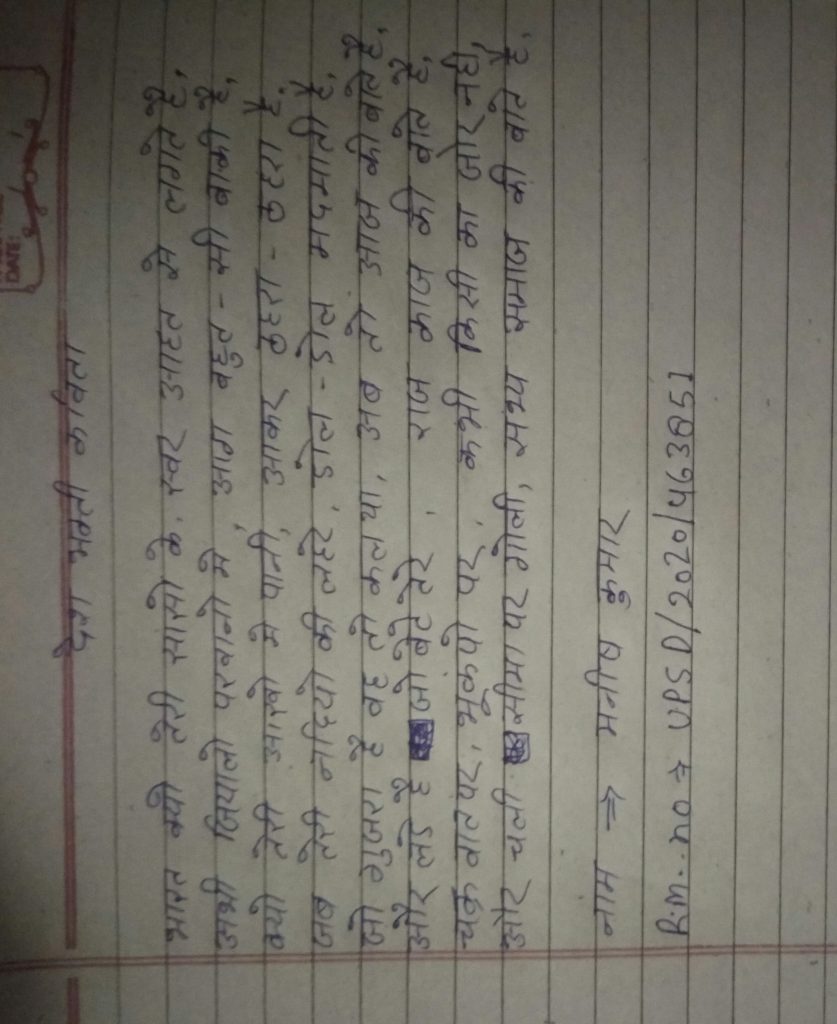 DATE:
देश भक्ती कविता
भारत क्यो तेरी सासो के, स्वर आहत से लगते है,
अभी जियाले परवानो मे, आग बहुत - सी बाकी है,
क्यो तेरी आखो मे पानी, आकर ठहरा - ठहरा है,
जब तेरी नदियो की लहरे, डोल - डोल मदमाती है,
जो गुजरा है वह तो कल था, अब तो आज की बाते है,
और लडे है जो बेटे तेरे, राज काज की बाते है,
चक्रवात पर, भूकंपो पर, कभी किसी का जोर नही,
और चली सीमा पर गोली, सभ्य समाज की बाते है.
नाम ⇒ मनीष कुमार
R.M. no → UPSD/2020/463851